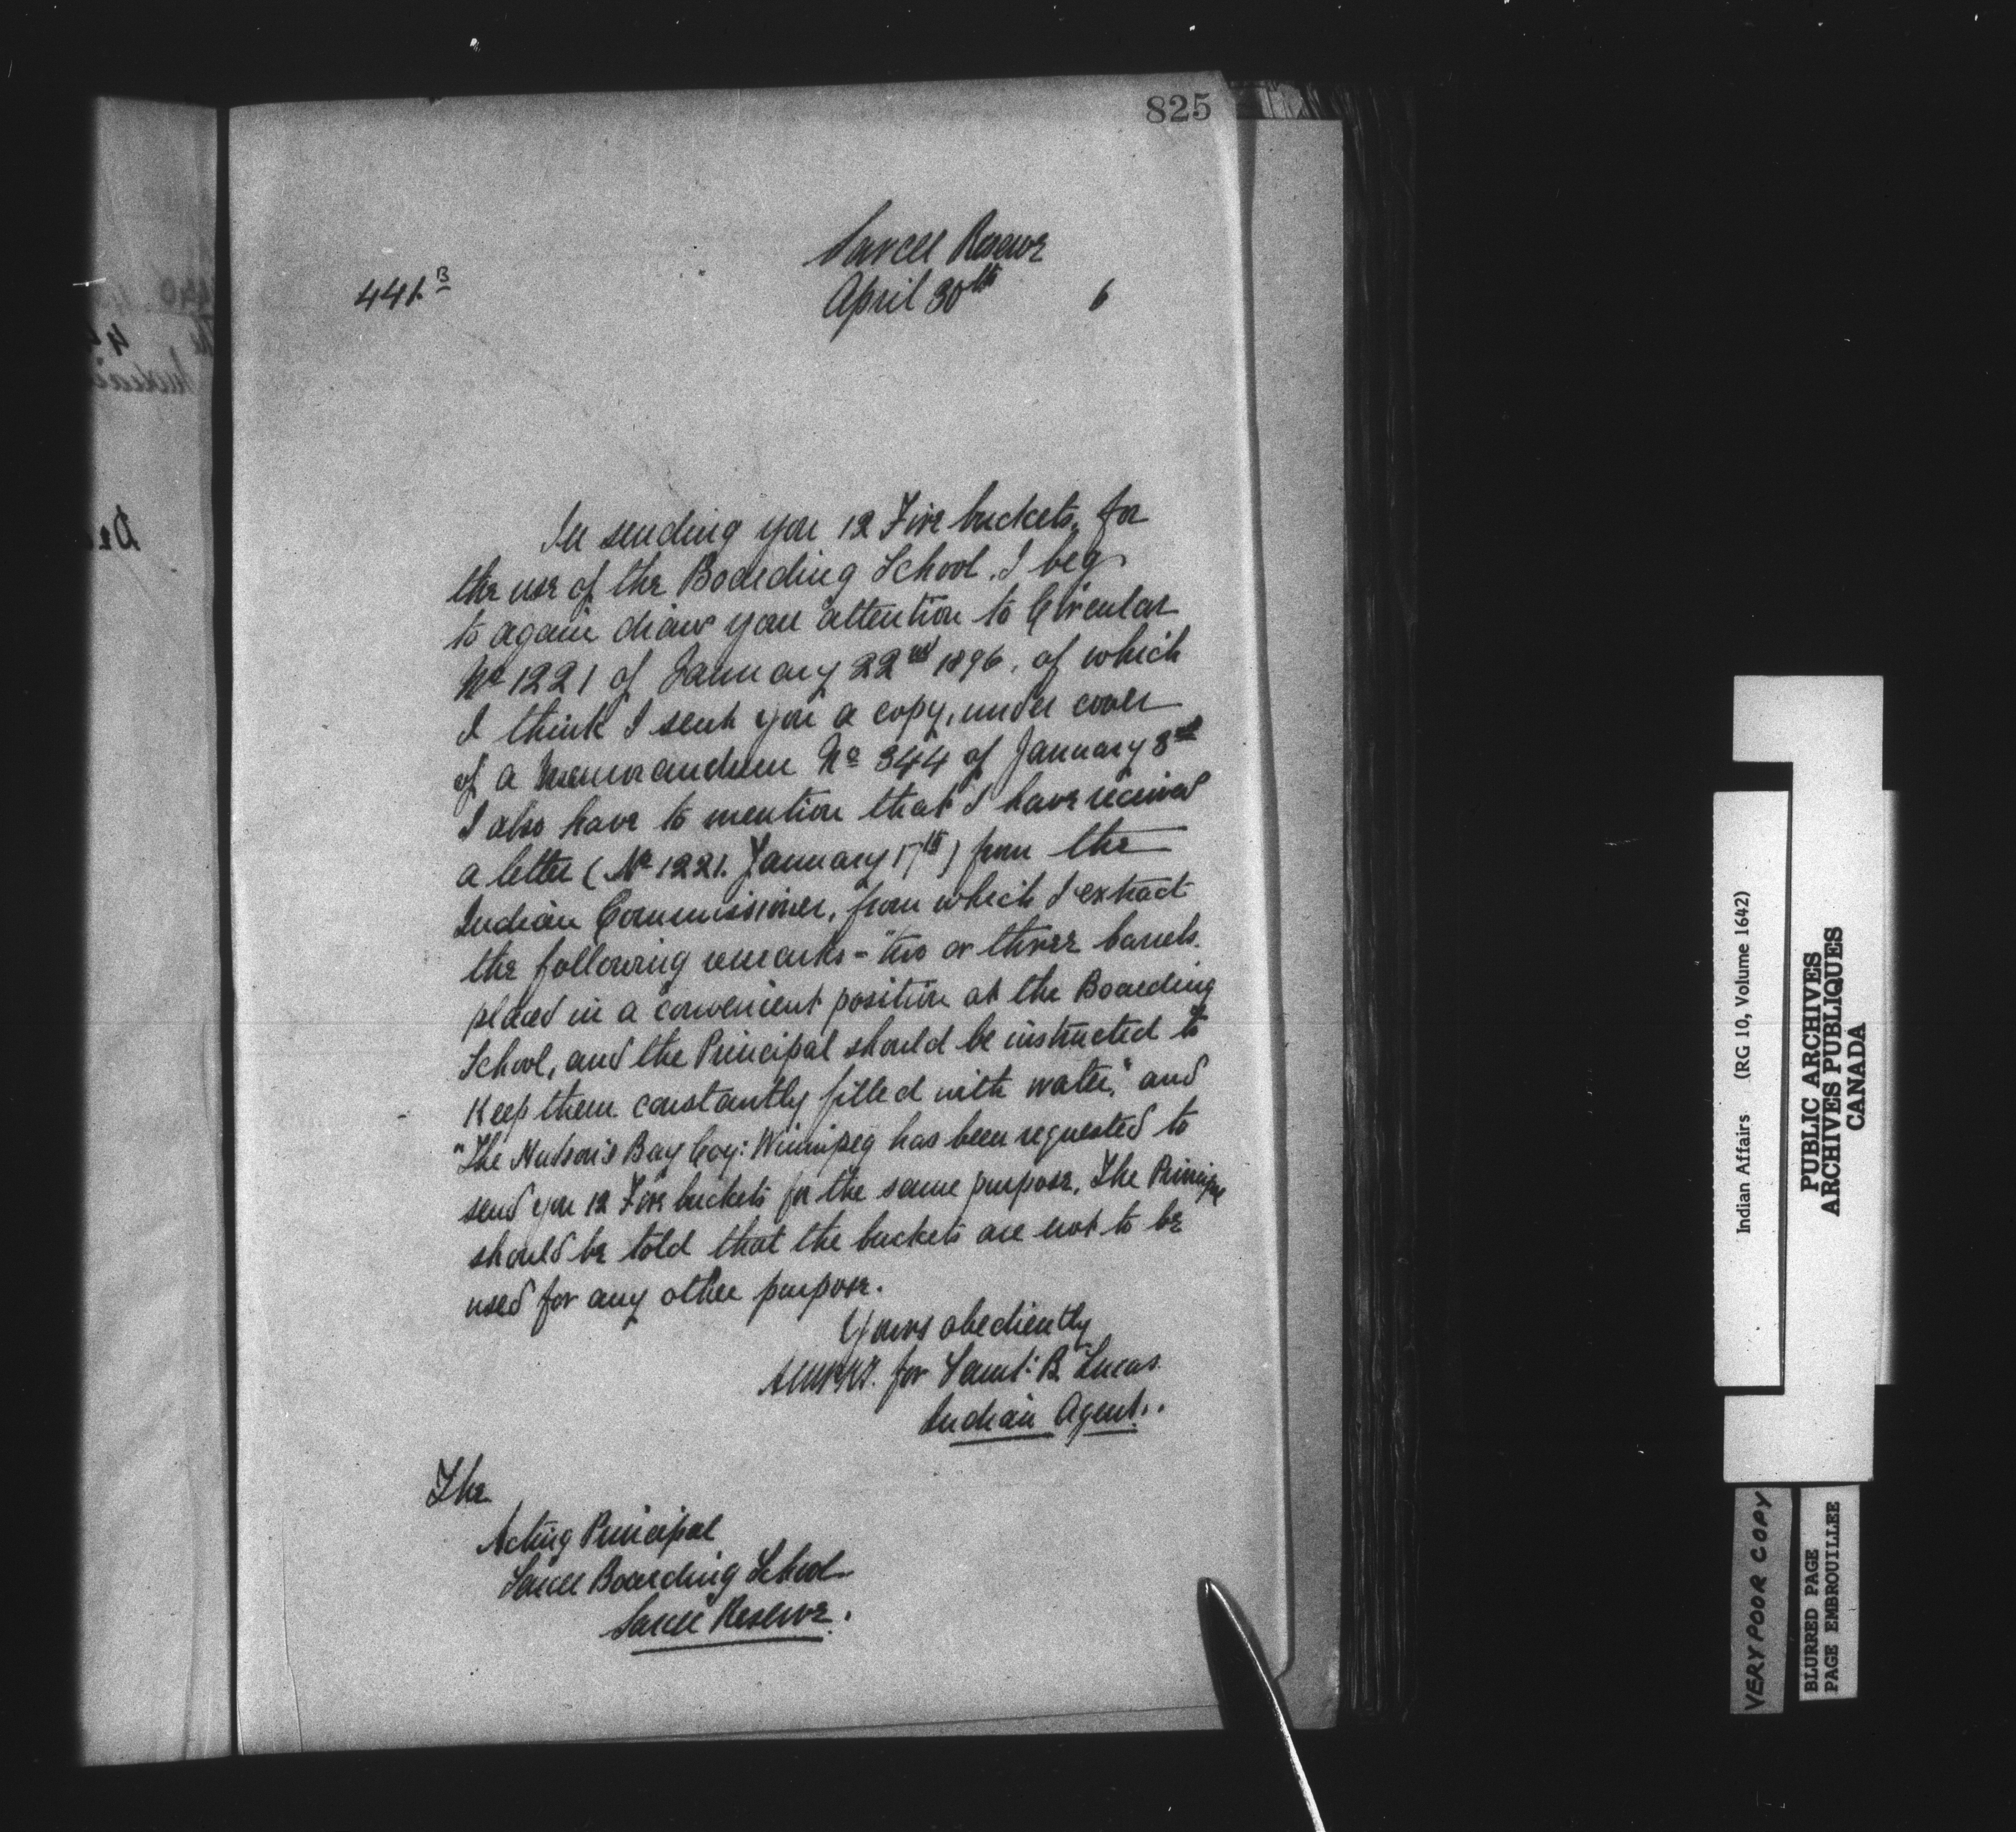 825
Sarcee Reserve
441 B
April 30th 6
In sending you 12 Fire buckets, for
the use of the Boarding School, I beg
to again draw your attention to Circular
No 1221 of January 22nd 1896, of which
I think I sent you a copy, under cover
of a Memorandum No 344 of January 3rd
I also have to mention that I have received
a letter (No 1221. January 17th) from the
Indian Commissioner, from which I extract
the following remarks - "two or three barrels
placed in a convenient position at the Boarding
School, and the Principal should be instructed to
Keep them constantly filled with water," and
"The Hudson's Bay Coy: Winnipeg has been requested to
send you 12 Fire buckets for the same purpose, The Principal
should be told that the buckets are not to be
used for any other purpose.
Yours obediently
for Saml: B. Lucas
Indian Agent..
The
Acting Principal
Sarcee Boarding School
Sarcee Reserve.
Indian Affairs (RG 10, Volume 1642)
PUBLIC ARCHIVES
ARCHIVES PUBLIQUES
CANADA
VERY POOR COPY
BLURRED PAGE
PAGE EMBROUILLEE